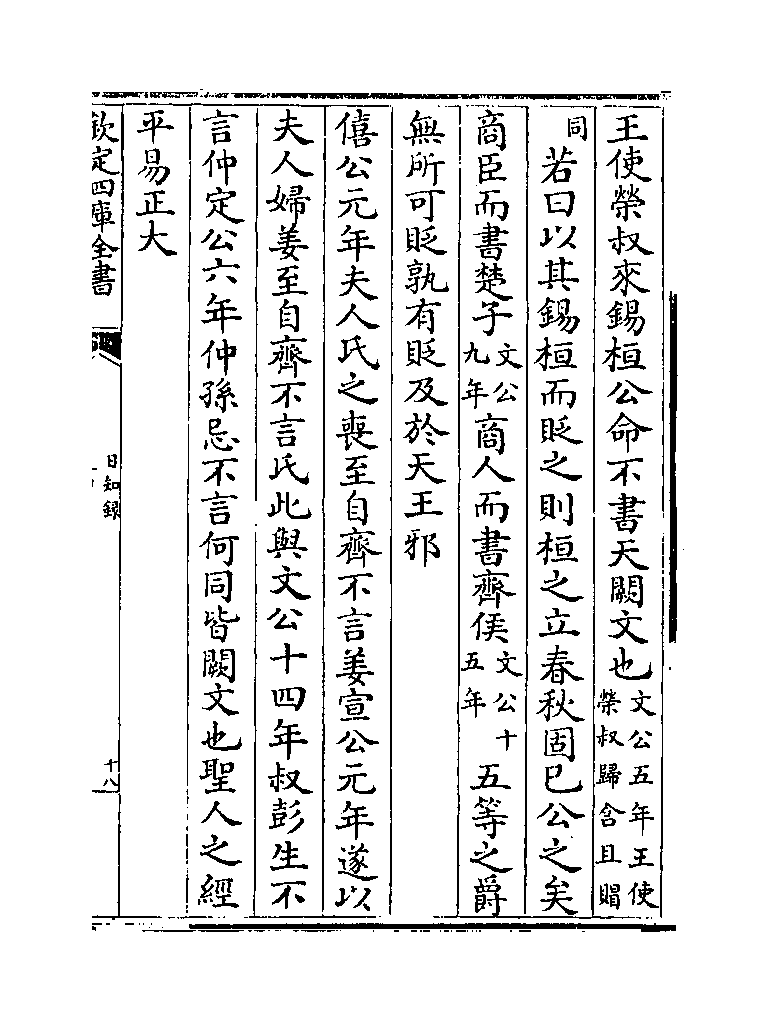 王使榮叔來錫桓公命不書天闕文也文公五年王使榮叔歸含且賵
同若曰以其錫桓而貶之則桓之立春秋固已公之矣
商臣而書楚子文公九年商人而書齊侯文公十五年五等之爵
無所可貶孰有貶及於天王邪
僖公元年夫人氏之喪至自齊不言姜宣公元年遂以
夫人婦姜至自齊不言氏此與文公十四年叔彭生不
言仲定公六年仲孫忌不言何同皆闕文也聖人之經
平易正大
欽定四庫全書
日知錄
十八